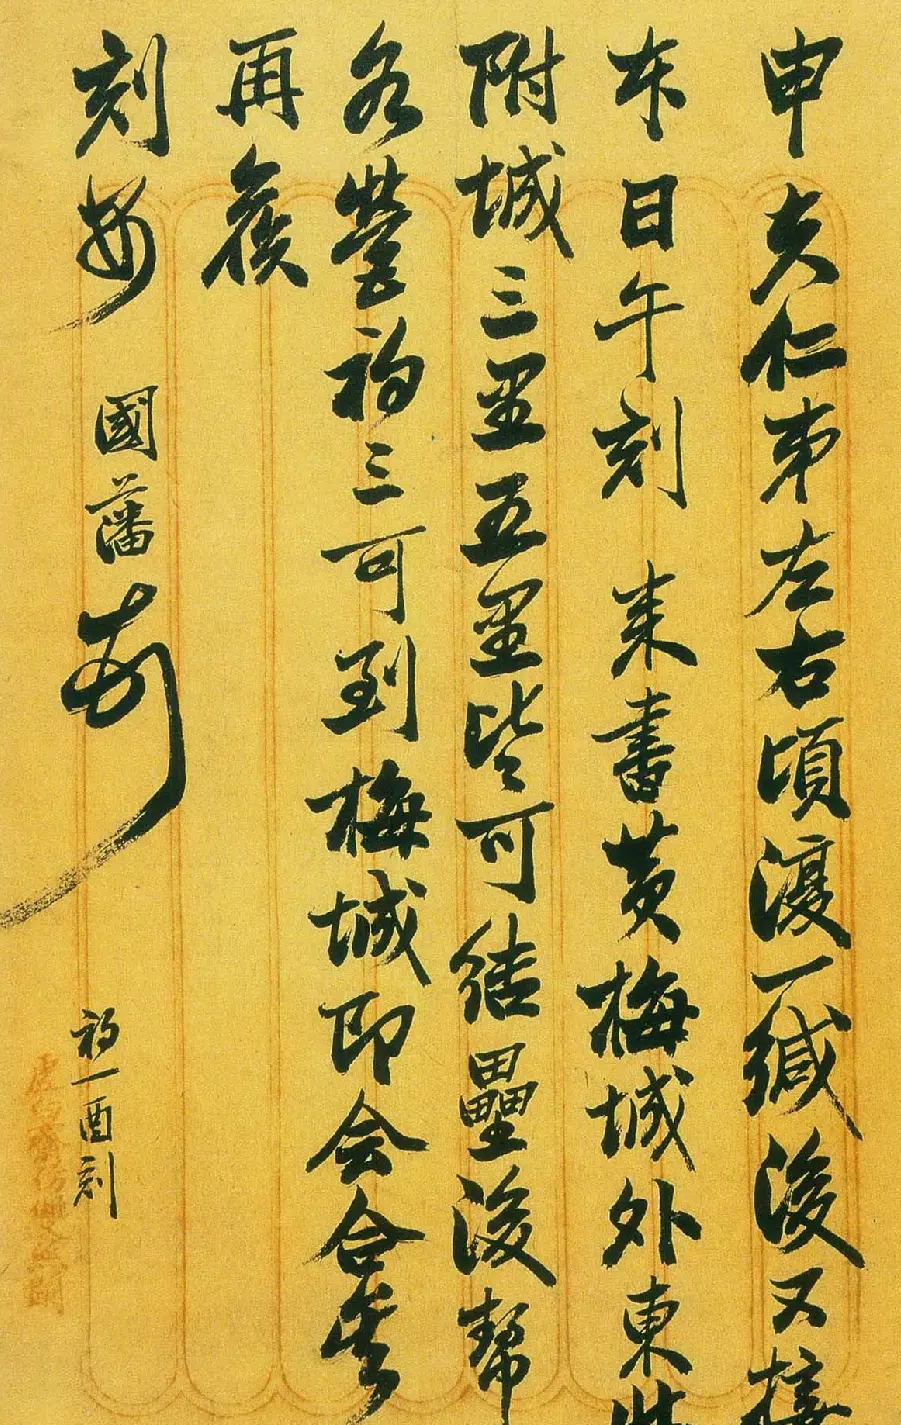 申夫仁弟左右頃澓一缄後又接
本日午刻 来書黄梅城外東
附城三里五里皆可结壘後幇
各營初三可到梅城即会合
再候
刻安 國藩
初一酉刻